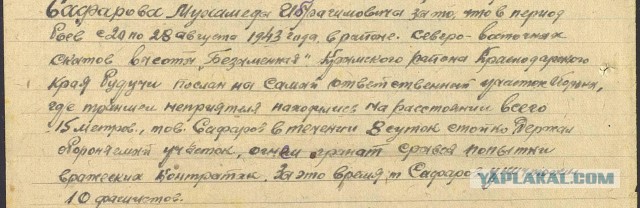 Сафарова Мухамеда Ибрагимовича за то, что в период
боев с 20 по 28 августа 1943 года, в районе Северо-восточных
скатов высоты "Безимянная" Крымского района Краснодарского
Края будучи послан на самый ответственный участок обороны,
где траншеи неприятеля находились на расстоянии всего
15 метров, тов. Сафаров в течении 8 суток стойко держал
обороняемый участок, огнем гранат срывая попытки
вражеских контратак. За это время т. Сафаров
10 фашистов.
YAPLAKAL.COM